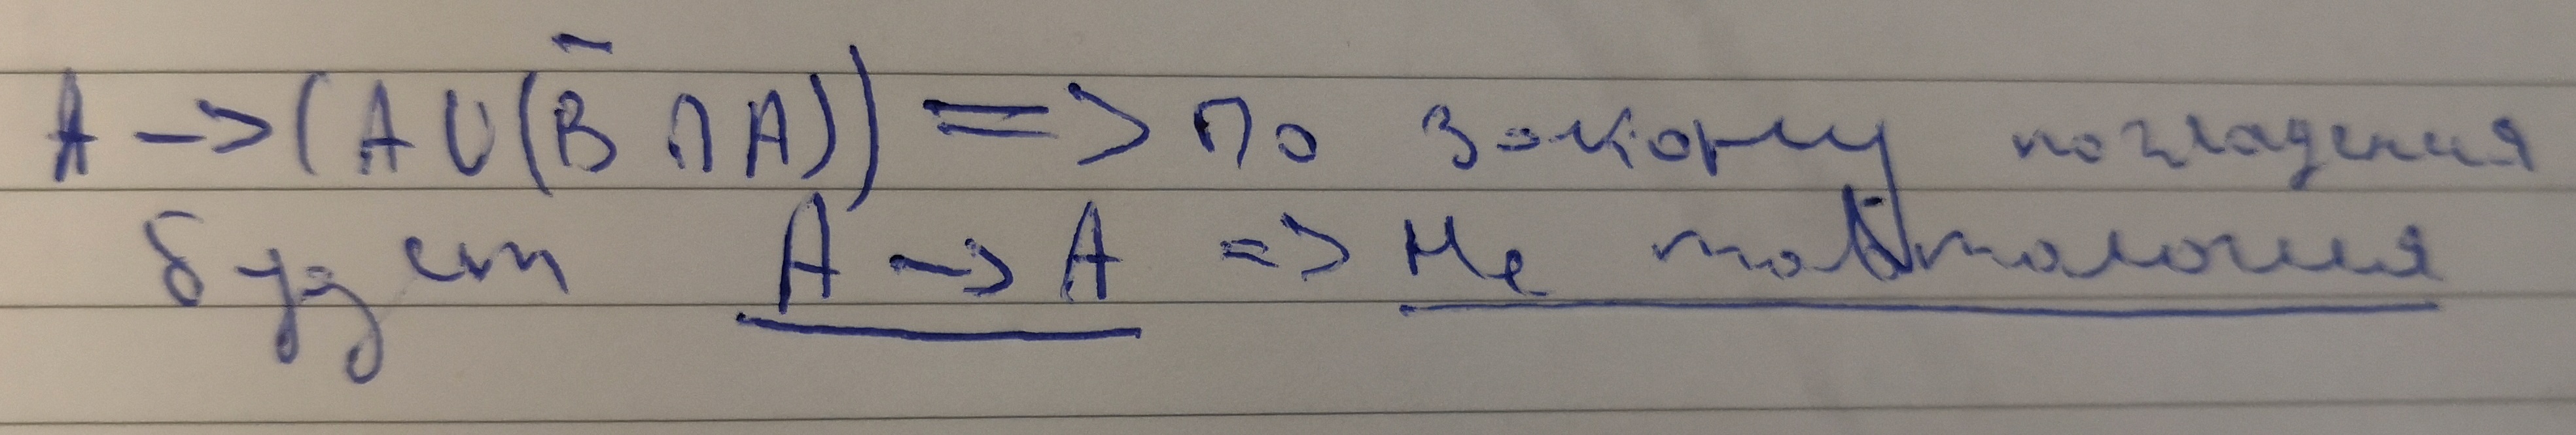 A -> (A ∪ (B̄ ∩ A)) => по закону поглащения
будет A -> A => Не тавтология